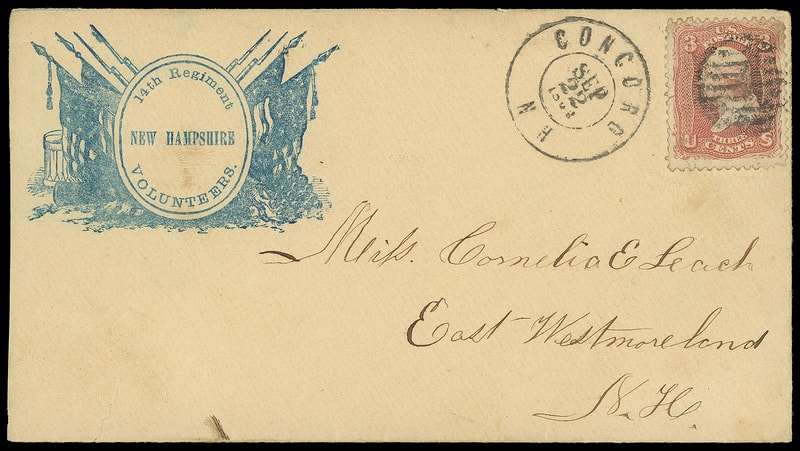 14th Regiment
NEW HAMPSHIRE
VOLUNTEERS.
CONCORD
N H
SEP
22
3
U S
THREE
CENTS
Miss. Cornelia E Leach
East Westmoreland
N. H.